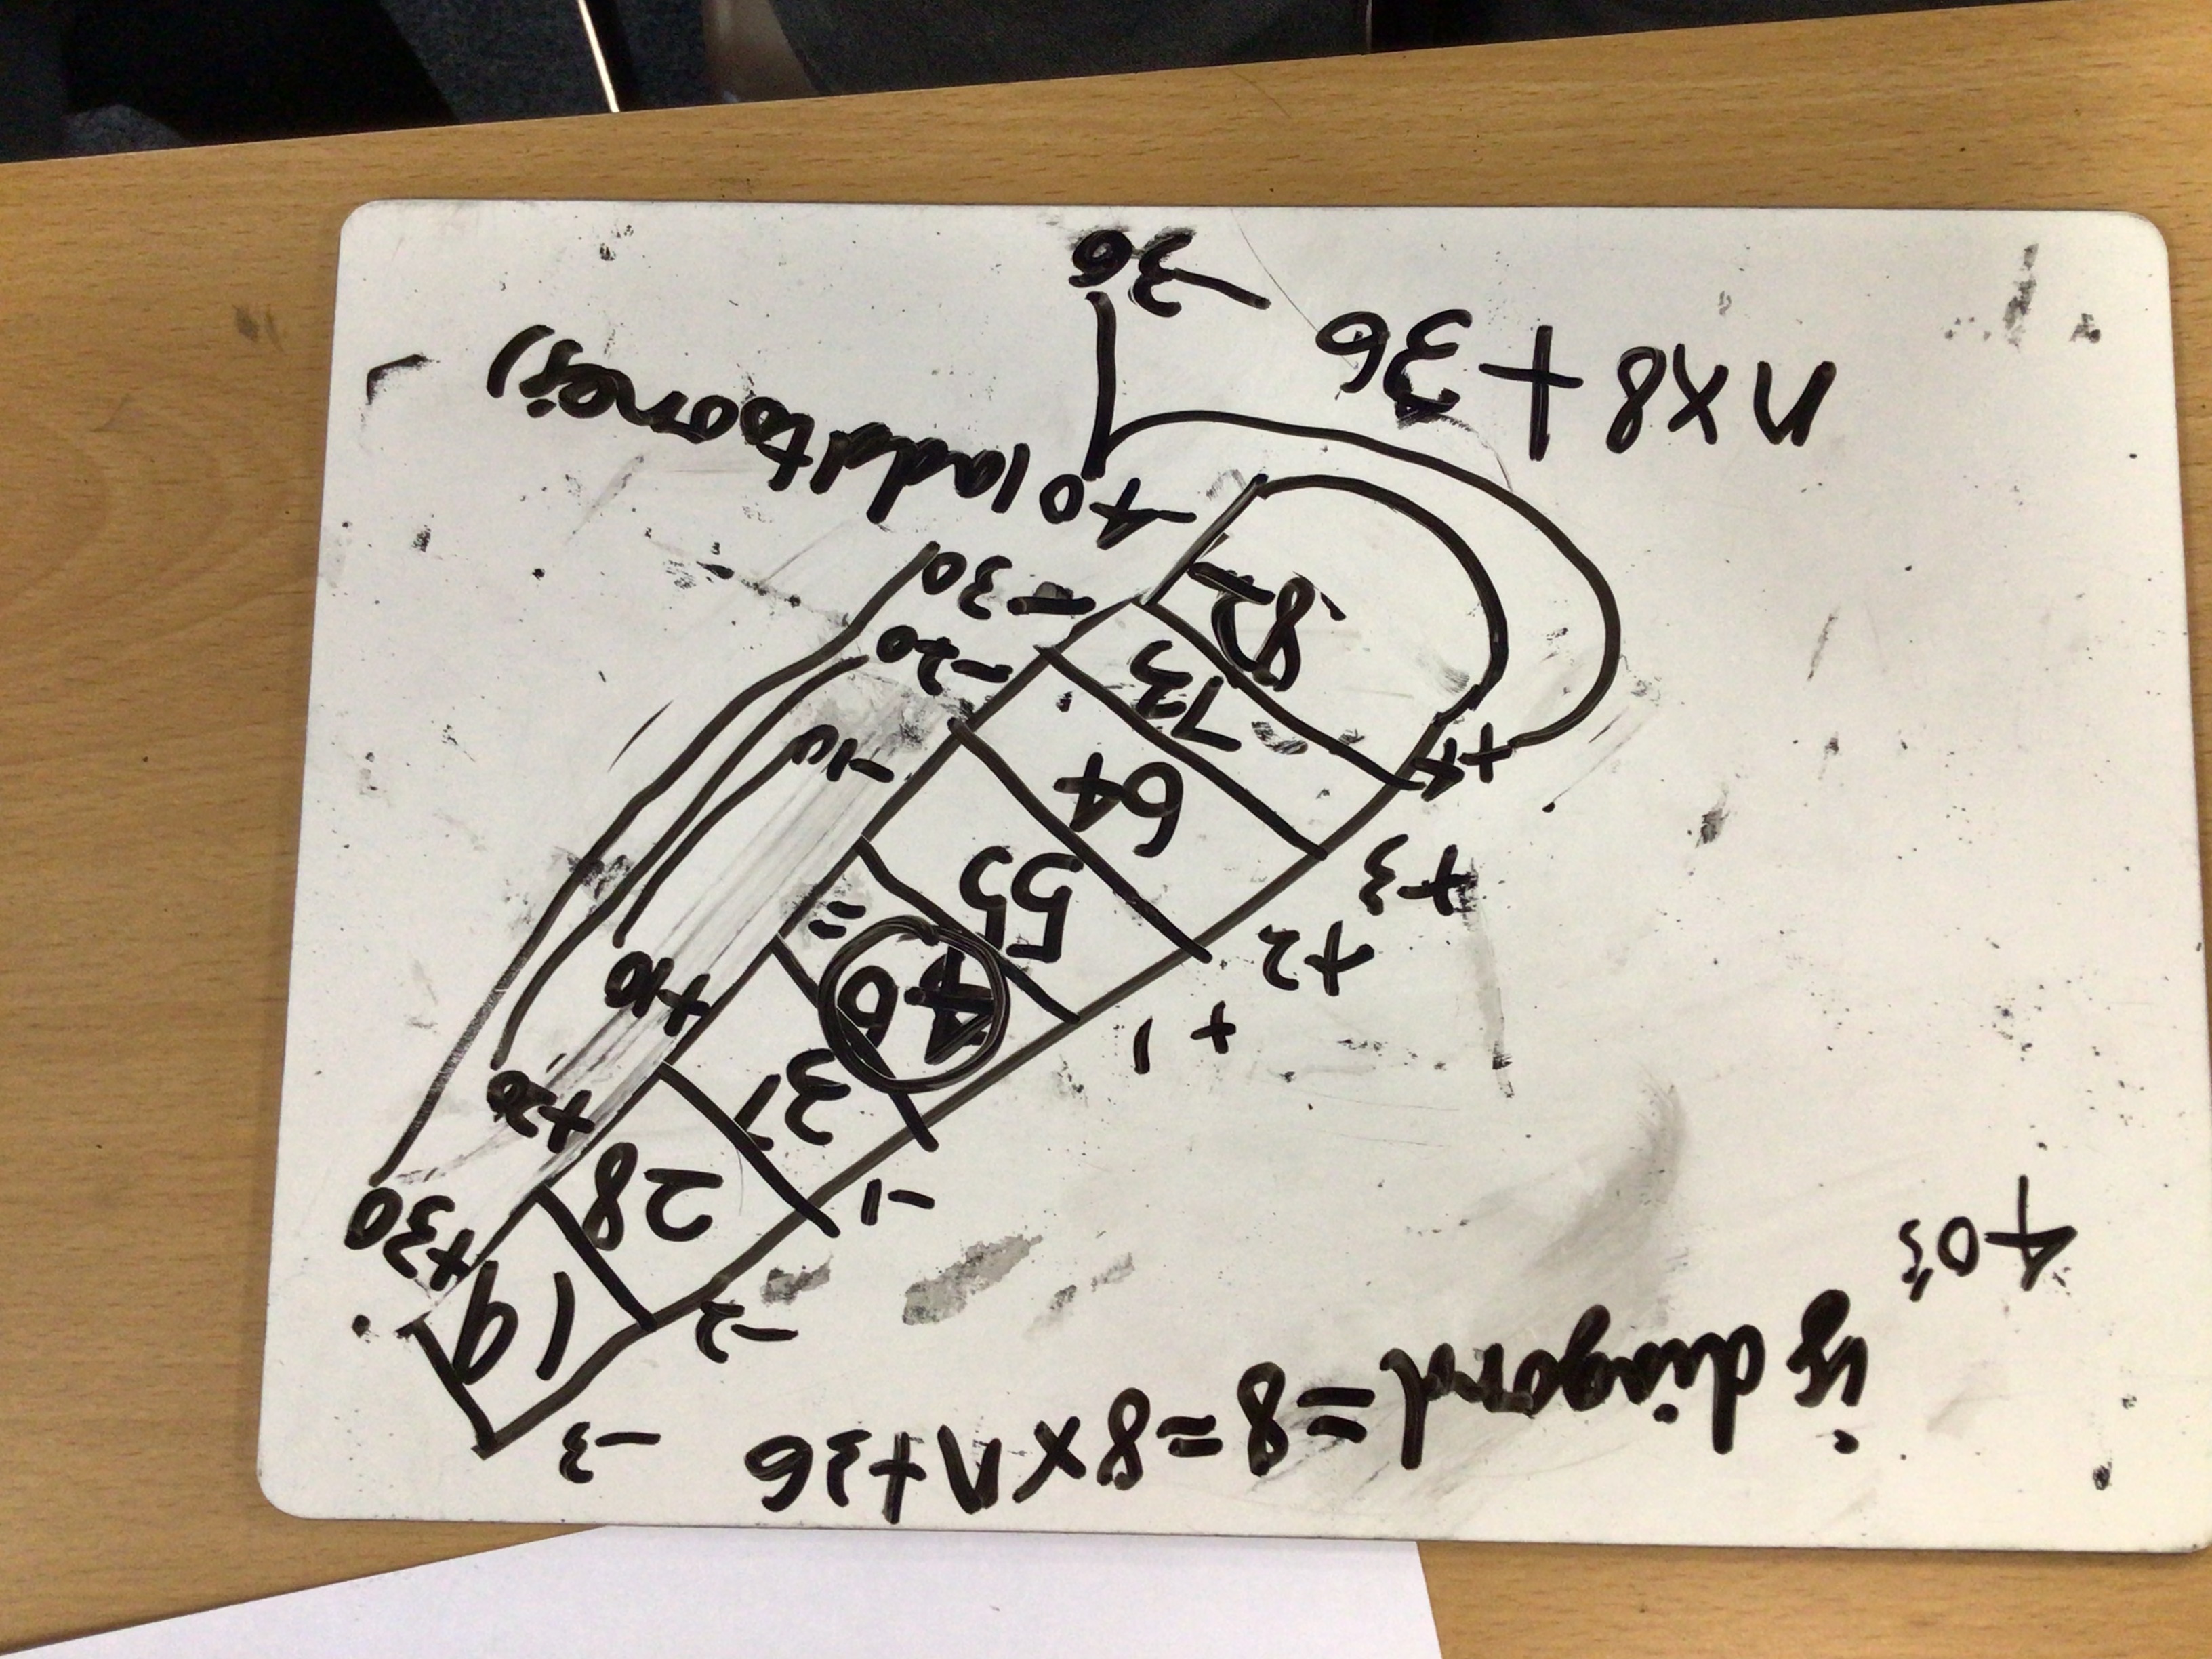 40's
if diagonal = 8 = 8 x n + 36
-3
19
+30
-2
28
+20
-1
37
+10
46 =
+1
55
-10
+2
64
-20
+3
73
-30
+4
82
-40 (add to ones)
n x 8 + 36
-36